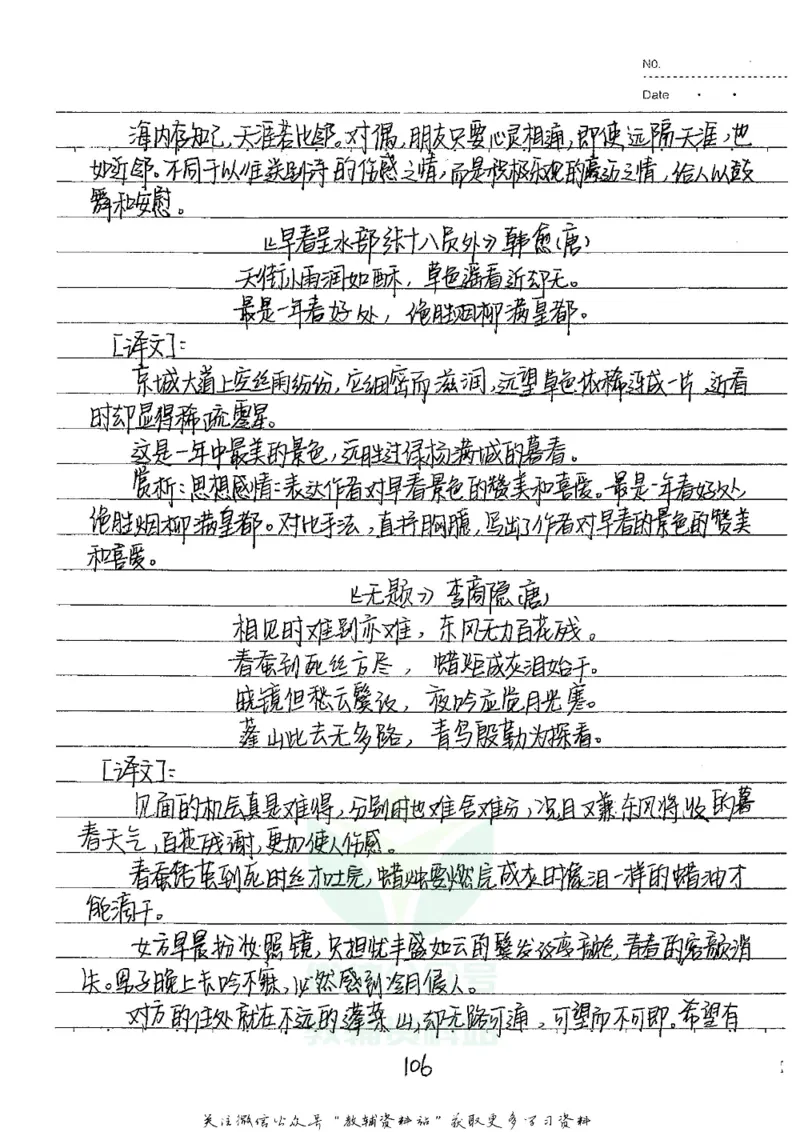 NO.
Date · ·
海内存知己,天涯若比邻。对偶,朋友只要心灵相通,即使远隔天涯,也
如近邻。不同于以往送别诗的伤感之情,而是积极乐观的豪迈之情,给人以鼓
舞和安慰。
《早春呈水部张十八员外》韩愈(唐)
天街小雨润如酥,草色遥看近却无。
最是一年春好处,绝胜烟柳满皇都。
[译文]:
京城大道上空丝雨纷纷,它细密而滋润,远望草色依稀连成一片,近看
时却显得稀疏零星。
这是一年中最美的景色,远胜过绿杨满城的暮春。
赏析:思想感情:表达作者对早春景色的赞美和喜爱。最是一年春好处,
绝胜烟柳满皇都。对比手法,直抒胸臆,写出了作者对早春的景色的赞美
和喜爱。
《无题》李商隐(唐)
相见时难别亦难,东风无力百花残。
春蚕到死丝方尽,蜡炬成灰泪始干。
晓镜但愁云鬓改,夜吟应觉月光寒。
蓬山此去无多路,青鸟殷勤为探看。
[译文]:
见面的机会真是难得,分别时也难舍难分,况且又兼东风将收的暮
春天气,百花残谢,更加使人伤感。
春蚕结茧到死时丝才吐完,蜡烛要燃完成灰时像泪一样的蜡油才
能滴干。
女方早晨扮妆照镜,只担忧丰盛如云的鬓发改变颜色,青春的容颜消
失。男子晚上长吟不寐,必然感到冷月侵人。
对方的住处就在不远的蓬莱山,却无路可通,可望而不可即。希望有
106
关注微信公众号"教辅资料站"获取更多学习资料